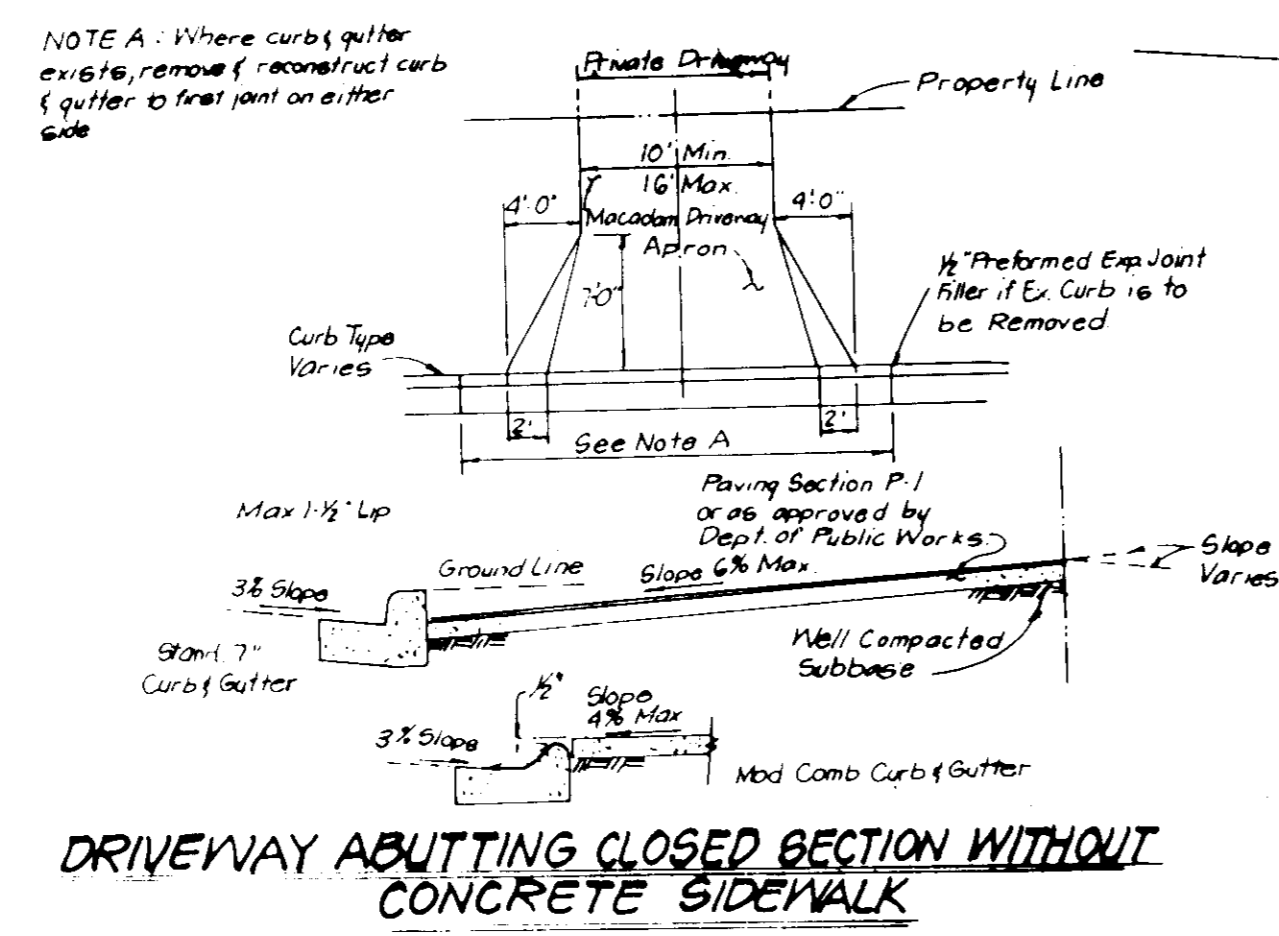 NOTE A : Where curb & gutter
exists, remove & reconstruct curb
& gutter to first joint on either
side
Private Driveway
Property Line
10' Min.
16' Max.
4'-0"
4'-0"
Macadam Driveway
Apron
7'-0"
½" Preformed Exp. Joint
Filler if Ex. Curb is to
be Removed
Curb Type
Varies
2'
2'
See Note A
Max 1-½" Lip
Paving Section P-1
or as approved by
Dept. of Public Works
Ground Line
Slope 6% Max.
Slope
Varies
3% Slope
Stand. 7"
Curb & Gutter
Well Compacted
Subbase
½"
Slope
4% Max
3% Slope
Mod Comb Curb & Gutter
DRIVEWAY ABUTTING CLOSED SECTION WITHOUT
CONCRETE SIDEWALK